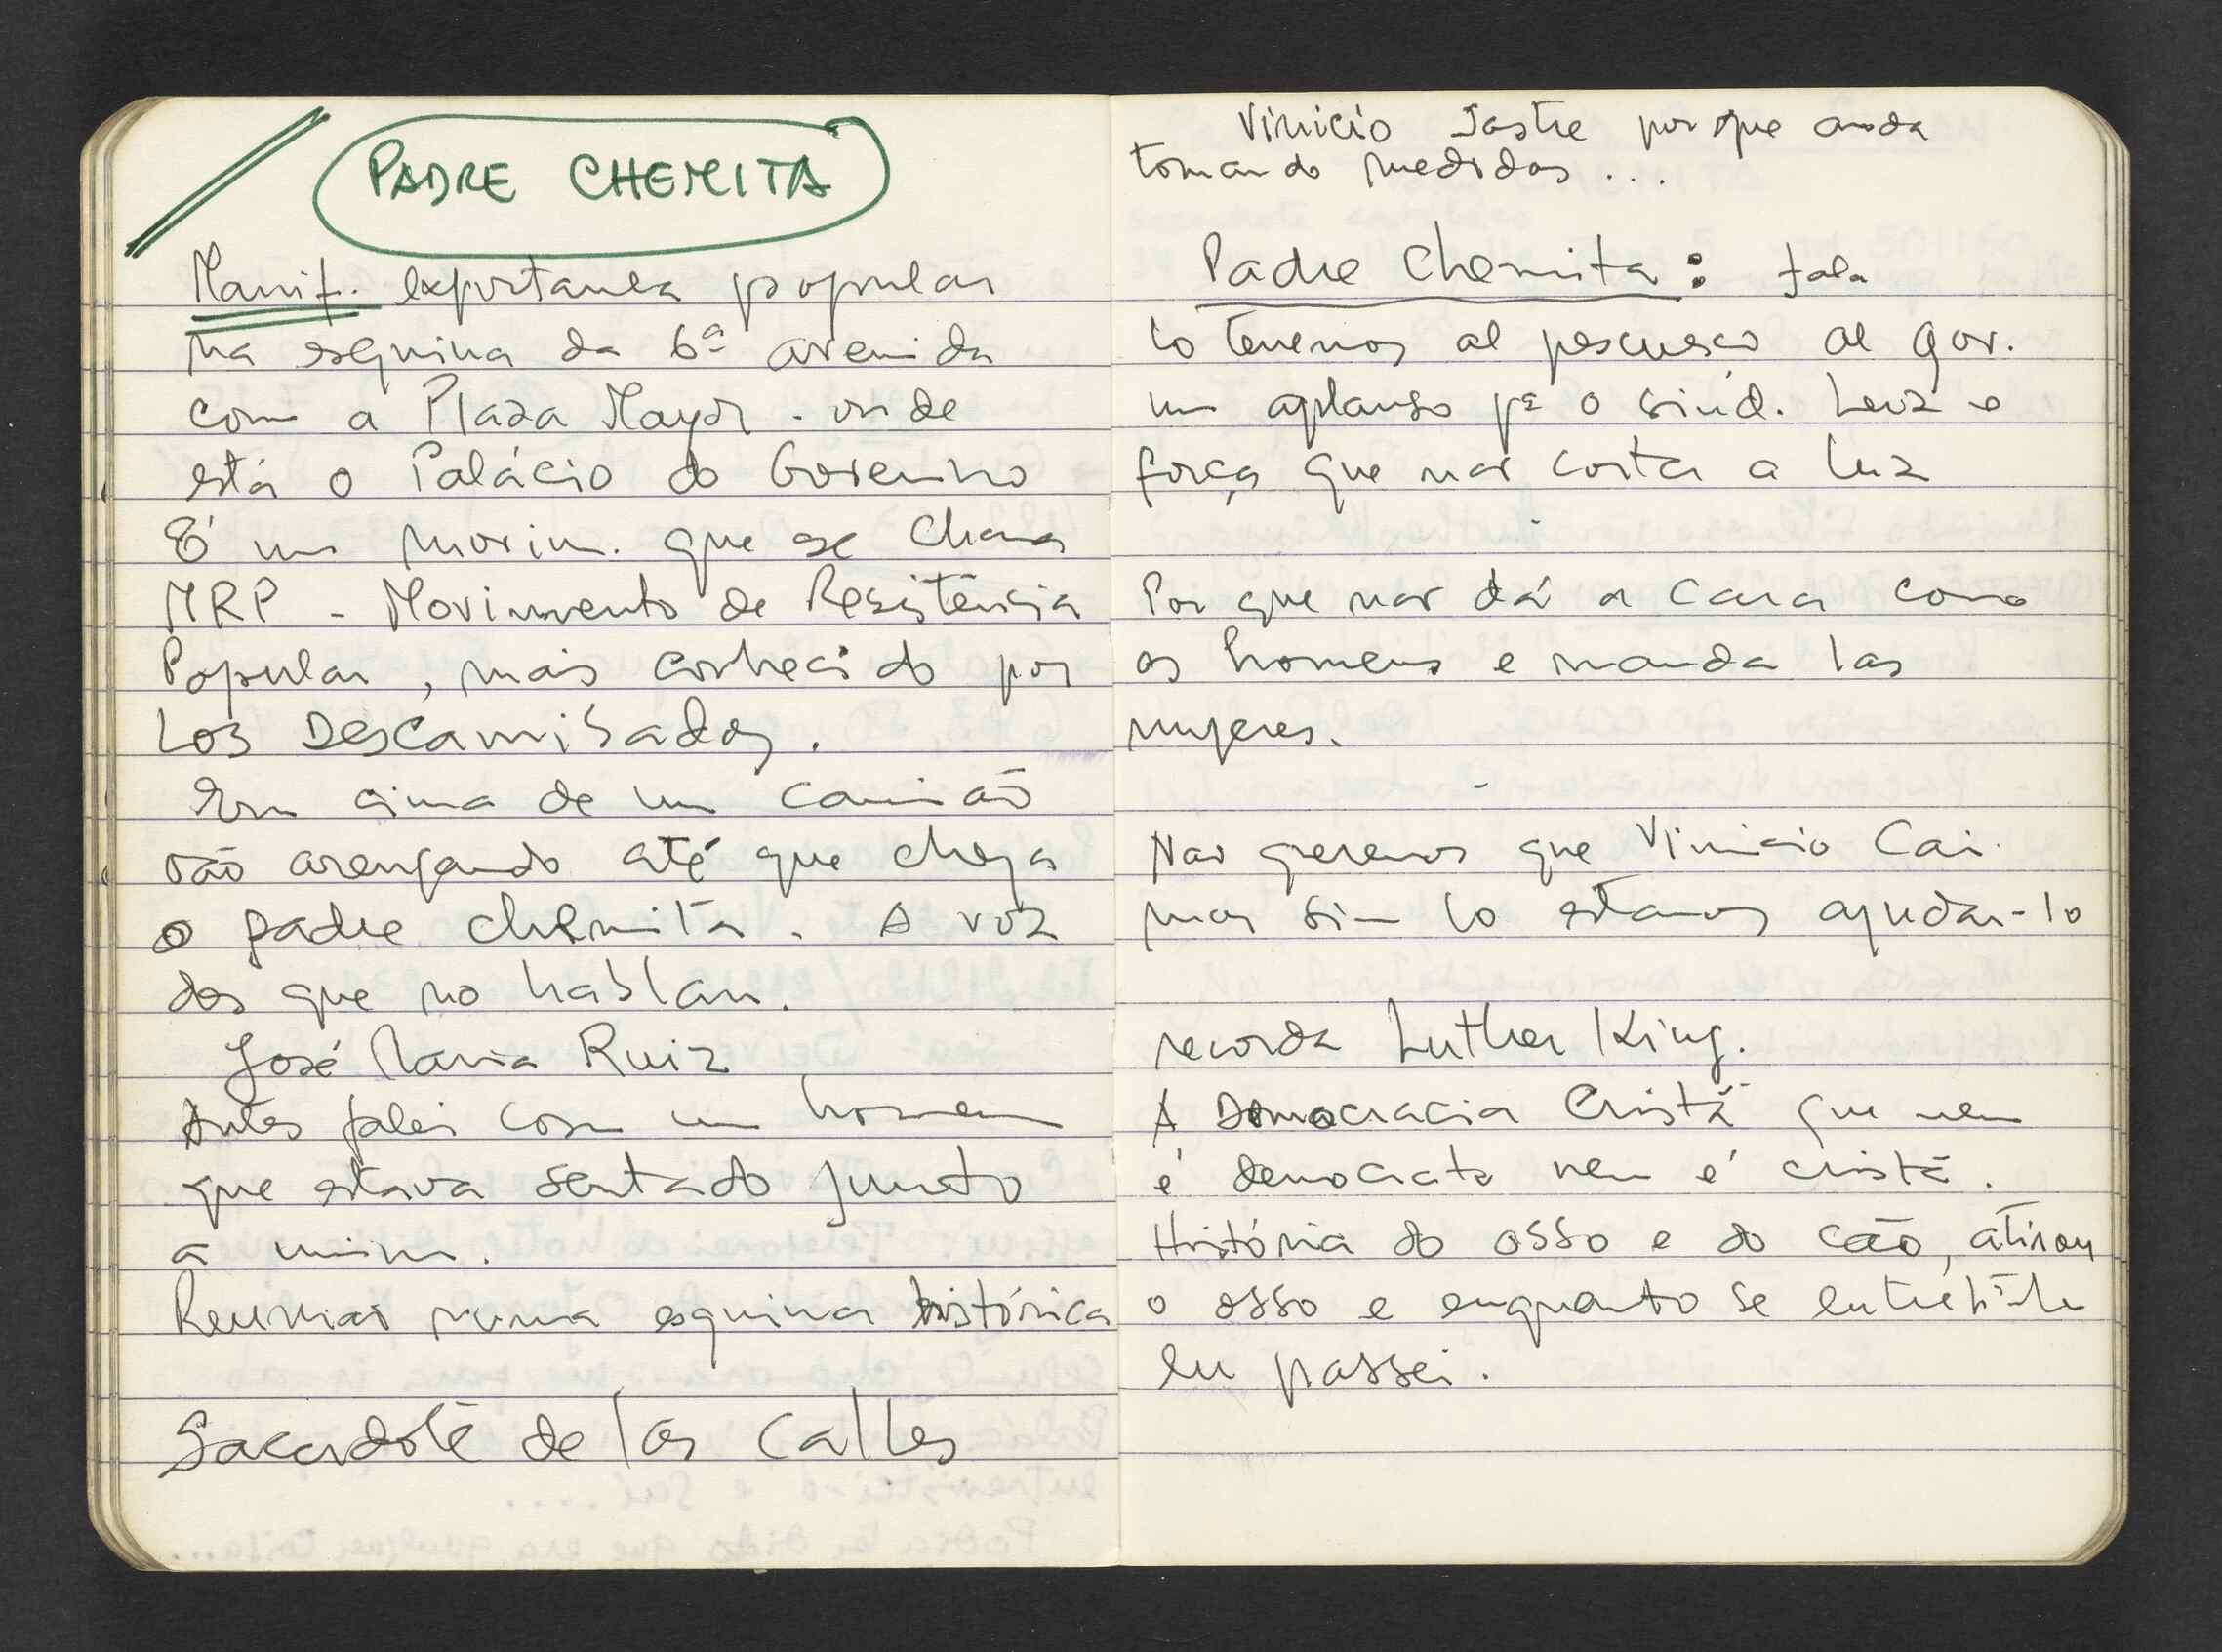 PADRE CHEMITA
Manif. espontanea popular
na esquina da 6ª avenida
com a Plaza Mayor - onde
está o Palácio do Governo
É um movim. que se chama
MRP - Movimento de Resistência
Popular, mais conhecido por
Los Descamisados.
Em cima de um camião
vão arengando até que chega
o padre chemita. A voz
dos que no hablan.
José Maria Ruiz
Antes falei com um homem
que estava sentado junto
a mim.
Reunião numa esquina histórica
Sacerdote de las Calles
Vinicio Sastre porque anda
tomando medidas...
Padre Chemita: fala
lo tenemos al pescueso al gov.
um aplauso pª o sind. Luz e
força que nao corta a luz
Por que nao dá a cara como
os homens e manda las
mujeres.
Nao queremos que Vinicio Cai.
mas sim lo estamos ajudar-lo
recorda Luther King.
A Democracia Cristã que nem
é democrata nem é cristã.
História do osso e do cão, atirou
o osso e enquanto se
eu passei.